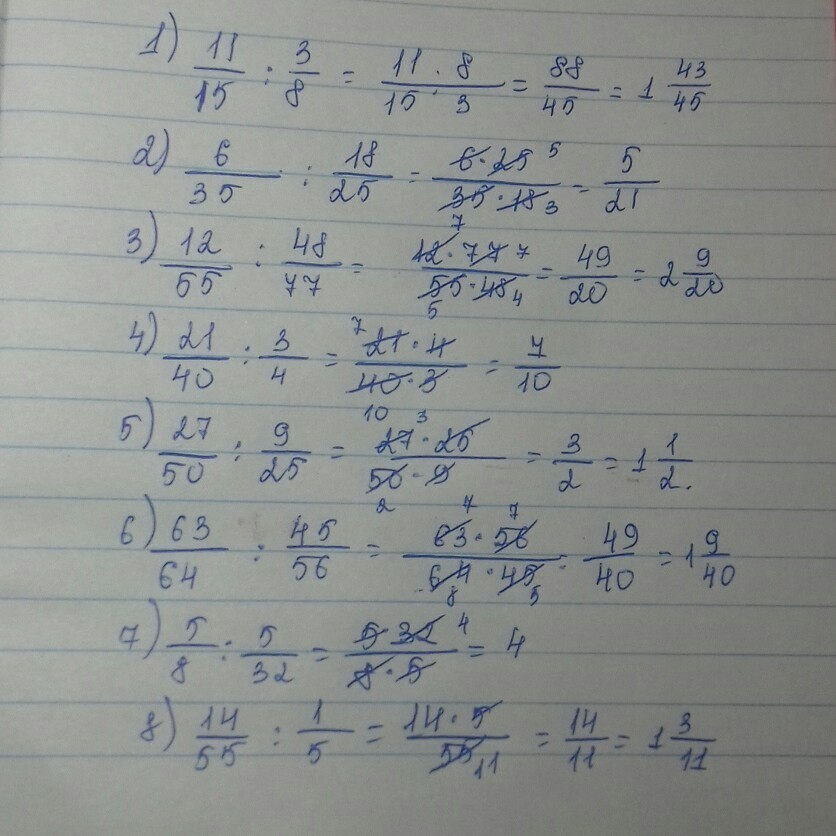 1) 11/15 : 3/8 = 11 · 8/15 · 3 = 88/45 = 1 43/45
2) 6/35 : 18/25 = 6 · 25 5/35 7 · 18 3 = 5/21
3) 12/55 : 48/77 = 12 · 77 7/55 5 · 48 4 = 49/20 = 2 9/20
4) 21/40 : 3/4 = 7 21 · 4/40 10 · 3 = 7/10
5) 27/50 : 9/25 = 27 3 · 25/50 2 · 9 = 3/2 = 1 1/2.
6) 63/64 : 45/56 = 63 7 · 56 7/64 8 · 45 5 = 49/40 = 1 9/40
7) 5/8 : 5/32 = 5 · 32 4/8 · 5 = 4
8) 14/55 : 1/5 = 14 · 5/55 11 = 14/11 = 1 3/11